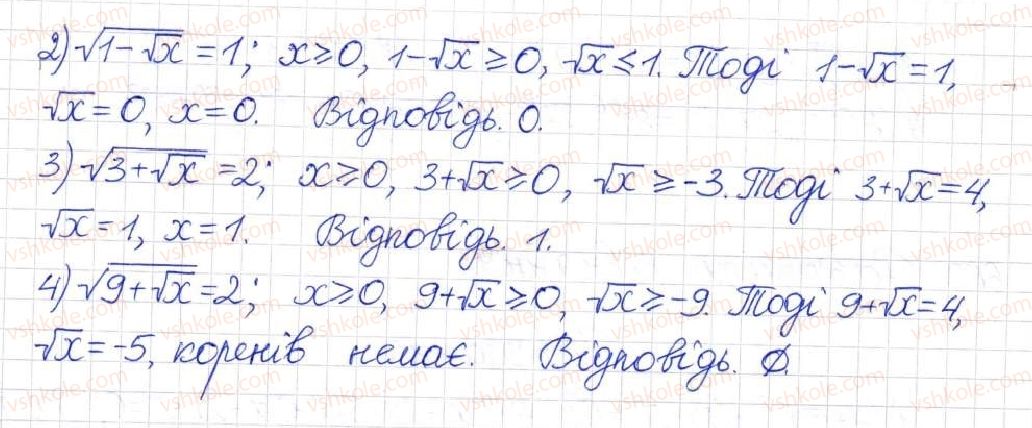 2) √(1-√x) = 1; x ≥ 0, 1-√x ≥ 0, √x ≤ 1. Тоді 1-√x = 1,
√x = 0, x = 0. Відповідь. 0.
3) √(3+√x) = 2; x ≥ 0, 3+√x ≥ 0, √x ≥ -3. Тоді 3+√x = 4,
√x = 1, x = 1. Відповідь. 1.
4) √(9+√x) = 2; x ≥ 0, 9+√x ≥ 0, √x ≥ -9. Тоді 9+√x = 4,
√x = -5, коренів немає. Відповідь. ∅.